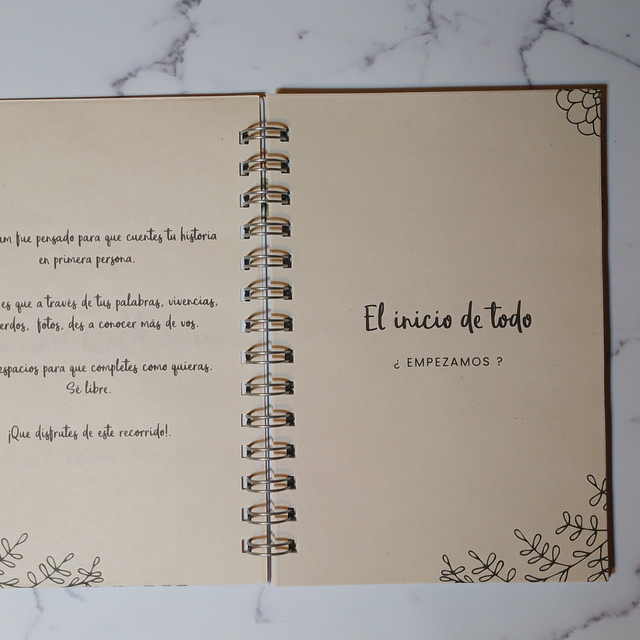 fue pensado para que cuentes tu historia
en primera persona.
es que a través de tus palabras, vivencias,
fotos, des a conocer más de vos.
espacios para que completes como quieras.
Sé libre.
¡Que disfrutes de este recorrido!.
El inicio de todo
¿ EMPEZAMOS ?